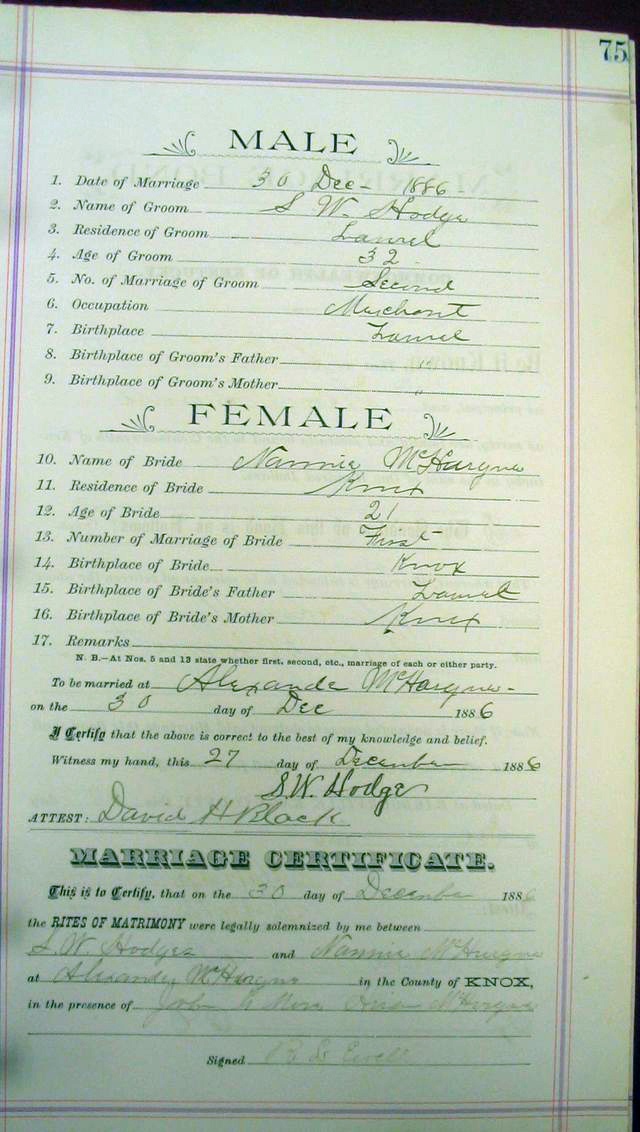 75
MALE
1. Date of Marriage 30 Dec- 1886
2. Name of Groom S W. Hodge
3. Residence of Groom Laurel
4. Age of Groom 32
5. No. of Marriage of Groom Second
6. Occupation Merchant
7. Birthplace Laurel
8. Birthplace of Groom's Father "
9. Birthplace of Groom's Mother "
FEMALE
10. Name of Bride Nannie McHargue
11. Residence of Bride Knox
12. Age of Bride 21
13. Number of Marriage of Bride First
14. Birthplace of Bride Knox
15. Birthplace of Bride's Father Laurel
16. Birthplace of Bride's Mother Knox
17. Remarks
N. B.—At Nos. 5 and 13 state whether first, second, etc., marriage of each or either party.
To be married at Alexander McHargue-
on the 30 day of Dec 1886
I Certify that the above is correct to the best of my knowledge and belief.
Witness my hand, this 27 day of December 1886
S.W. Hodge
ATTEST: David H Black
MARRIAGE CERTIFICATE.
This is to Certify, that on the 30 day of December 1886
the RITES OF MATRIMONY were legally solemnized by me between
S. W. Hodges and Nannie McHargue
at Alexander McHargue in the County of KNOX,
in the presence of John McHargue
Signed